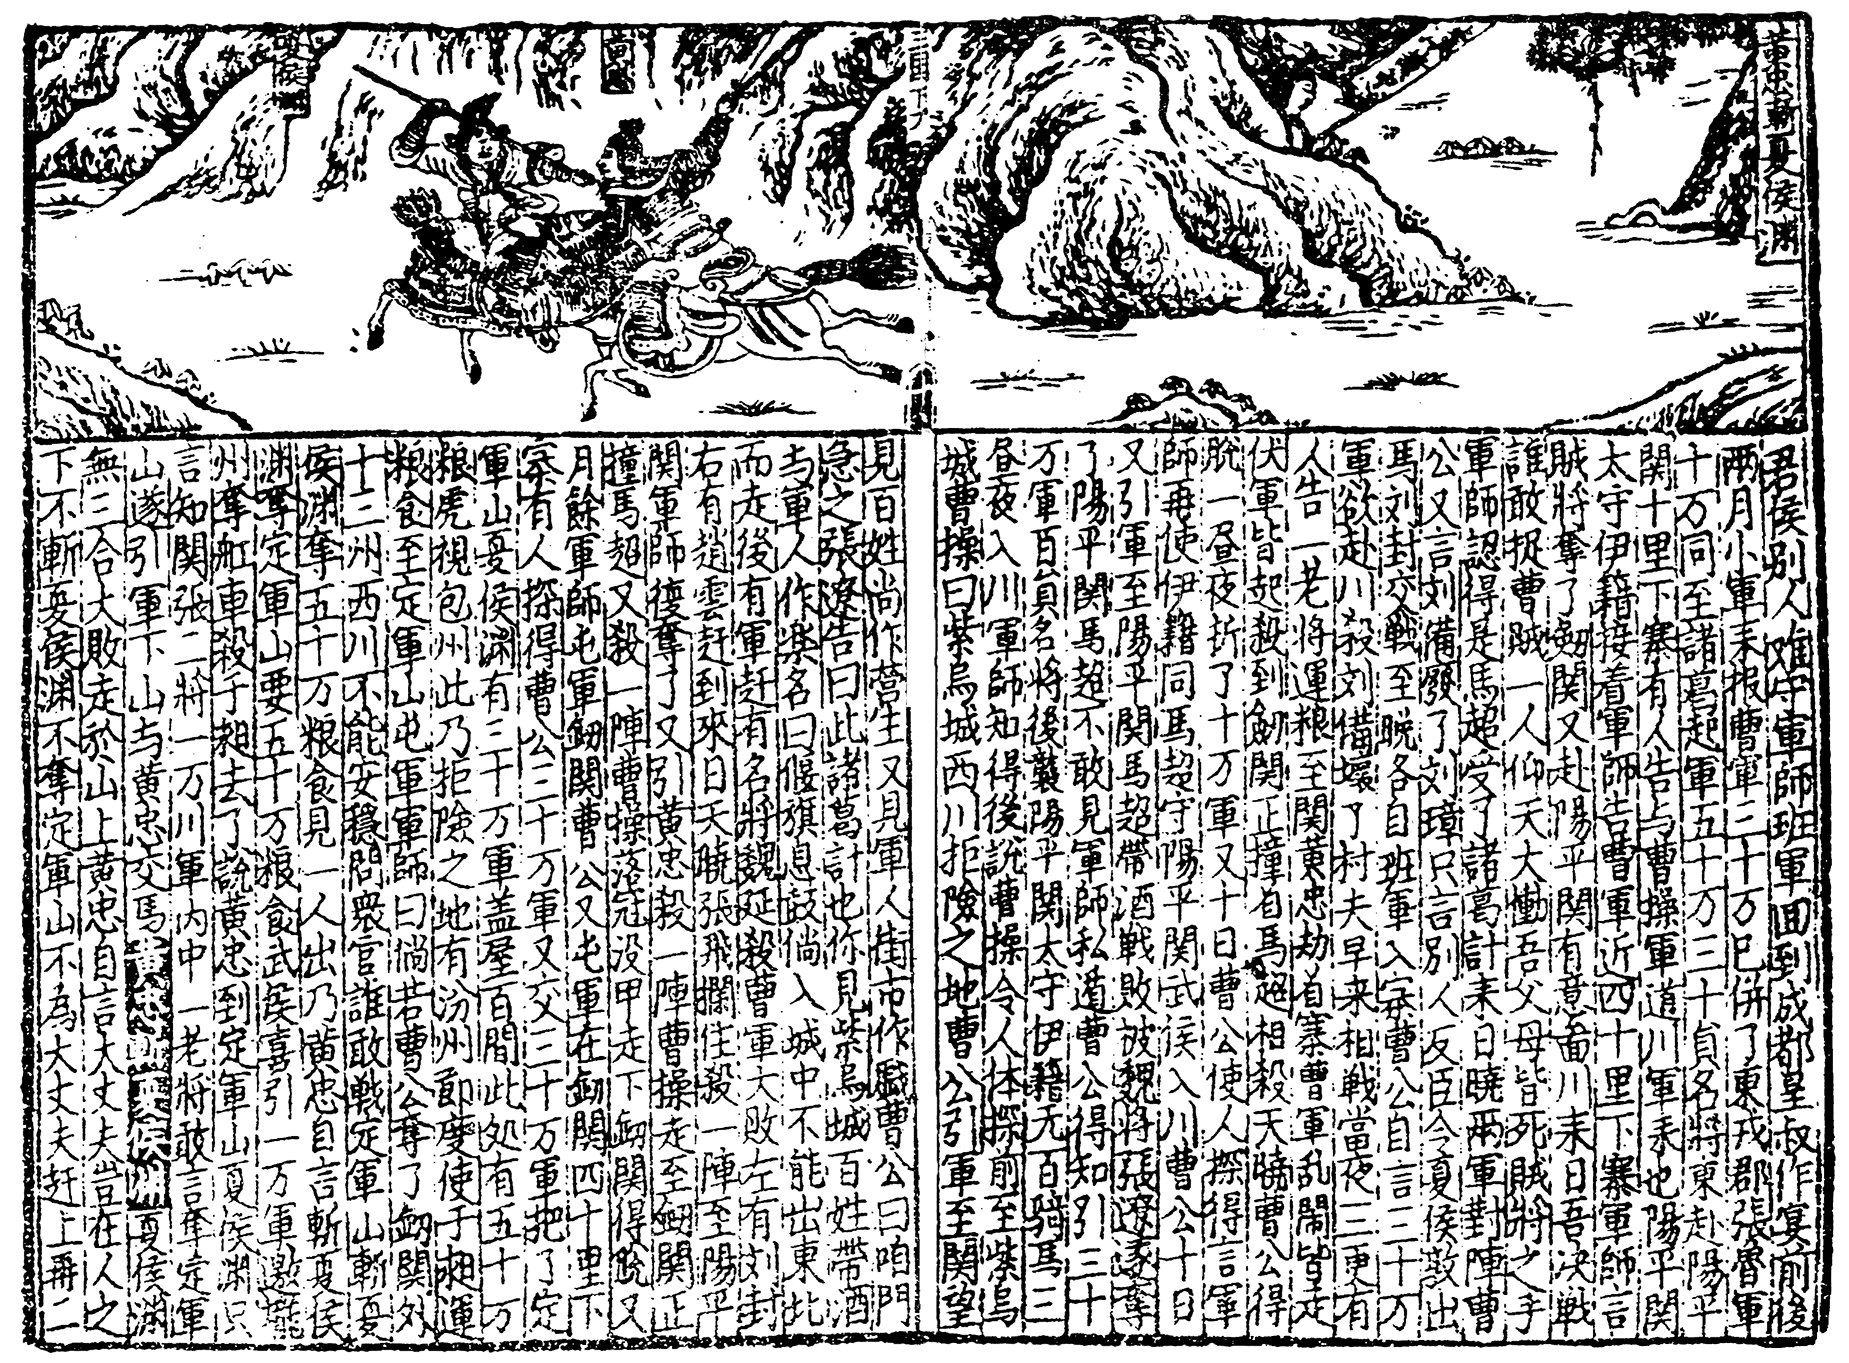 黄忠斬夏侯渊
君侯别人难守軍師班軍回到成都皇叔作宴前後
兩月小軍来报曹軍三十万已併了東戎郡張魯軍
十万同至諸葛起軍五十万三十員名將東赴陽平
関十里下寨有人告与曹操軍道川軍来也陽平関
太守伊籍接着軍師告曹軍近四十里下寨軍師言
賊將奪了劔関又赴陽平関有意面川来日吾决戦
誰敢捉曹賊一人仰天大慟吾父母皆死賊將之手
軍師認得是馬超受了諸葛計来日曉兩軍對陣曹
公又言刘備廢了刘璋只言别人反臣令夏侯敦出
馬刘封交戦至晩各自班軍入寨曹公自言三十万
軍欲赴川殺刘備壞了村夫早来相戦當夜三更有
人告一老將運粮至関黄忠劫自寨曹軍乱鬧皆走
伏軍皆起殺到劔関正撞自馬超相殺天曉曹公得
脱一昼夜折了十万軍又十日曹公使人探得言軍
師再使伊籍同馬超守陽平関武侯入川曹公十日
又引軍至陽平関馬超帶酒戦敗被魏將張遼逐奪
了陽平関馬超不敢見軍師私遁曹公得知引三十
万軍百員名將後襲陽平関太守伊籍无百騎馬三
昼夜入川軍師知得後説曹操令人体探前至紫烏
城曹操曰紫烏城西川拒險之地曹公引軍至関望
見百姓尚作营生又見軍人街市作戲曹公曰咱門
急之張遼告曰此諸葛計也你見紫烏城百姓帶酒
与軍人作楽名曰偃旗息鼓倘入城中不能出東北
而走後有軍赶有名將魏延殺曹軍大敗左有刘封
右有趙雲赶到來日天曉張飛攔住殺一陣至陽平
関軍師復奪了又引黄忠殺一陣曹操走至劔関正
撞馬超又殺一陣曹操落冠没甲走下劔関得脱又
月餘軍師屯軍劔関曹公又屯軍在劔関四十里下
寨有人探得曹公三十万軍又交三十万軍把了定
軍山夏侯渊有三十万軍盖屋百間此処有五十万
粮虎視包州此乃拒險之地有汾州節度使于昶運
粮食至定軍山屯軍軍師曰倘若曹公奪了劔関外
十三州西川不能安穏問衆官誰敢戦定軍山斬夏
侯渊奪五十万粮食見一人出乃黄忠自言斬夏侯
渊奪定軍山要五十万粮食武侯喜引一万軍邀攔
州奪舡車殺于昶去了説黄忠到定軍山夏侯渊只
言知関張二將一万川軍内中一老將敢言奪定軍
山遂引軍下山与黄忠交馬黄忠斬夏侯渊夏侯渊
無三合大敗走於山上黄忠自言大丈夫豈在人之
下不斬夏侯渊不奪定軍山不為大丈夫赶上再二